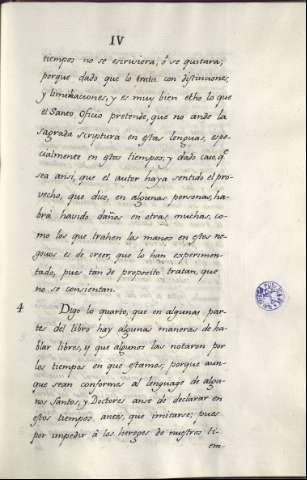 IV
tiempos no se escriviera, ó se quitara;
porque dado que lo trata con distinciones,
y limitaciones, y es muy bien etho lo que
el Santo Oficio pretende, que no ande la
sagrada scriptura en estas lenguas, espe-
cialmente en estos tiempos; y dado caso q.e
sea ansi, que el autor haya sentido el pro-
vecho, que dice, en algunas personas, ha-
brá havido daños en otras muchas, co-
mo los que trahen las manos en estos ne-
gocios es de creer, que lo han experimen-
tado, pues tan de proposito tratan, que
no se consientan.
4 Digo lo quarto, que en algunas par-
tes del libro hay algunas maneras de ha-
blar libres, y que algunos las notaron por
los tiempos en que estamos; porque aun-
que sean conformes al lenguage de algu-
nos Santos, y Doctores anse de declarar en
estos tiempos antes, que imitarse; pues
por impedir á los hereges de nuestros ti-
em-